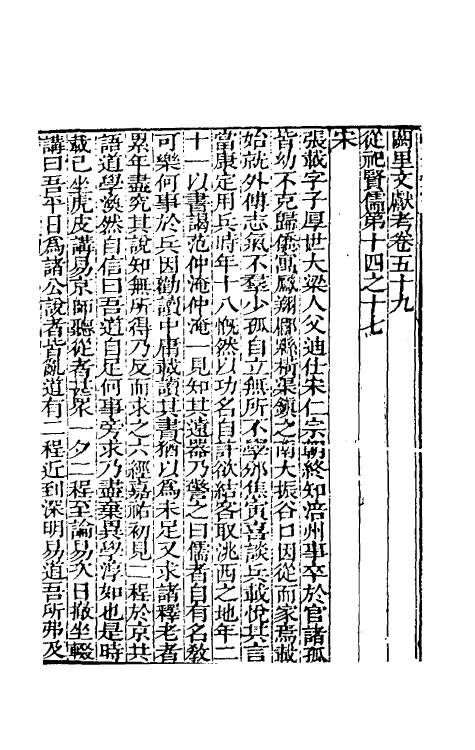 闕里文獻考卷五十九
從祀賢儒第十四之十七
宋
張載字子厚世大梁人父迪仕宋仁宗朝終知涪州事卒於官諸孤
皆幼不克歸僑寓鳳翔郿縣橫渠鎮之南大振谷口因從而家焉載
始就外傅志氣不羣少孤自立無所不學邠焦寅喜談兵載悅其言
當康定用兵時年十八慨然以功名自許欲結客取洮西之地年二
十一以書謁范仲淹仲淹一見知其遠器乃警之曰儒者自有名教
可樂何事於兵因勸讀中庸載讀其書猶以為未足又求諸釋老者
累年盡究其說知無所得乃反而求之六經嘉祐初見二程於京共
語道學渙然自信曰吾道自足何事旁求乃盡棄異學淳如也是時
載已坐虎皮講易京師聽從者甚衆一夕二程至論易次日撤坐輟
講曰吾平日為諸公說者皆亂道有二程近到深明易道吾所弗及